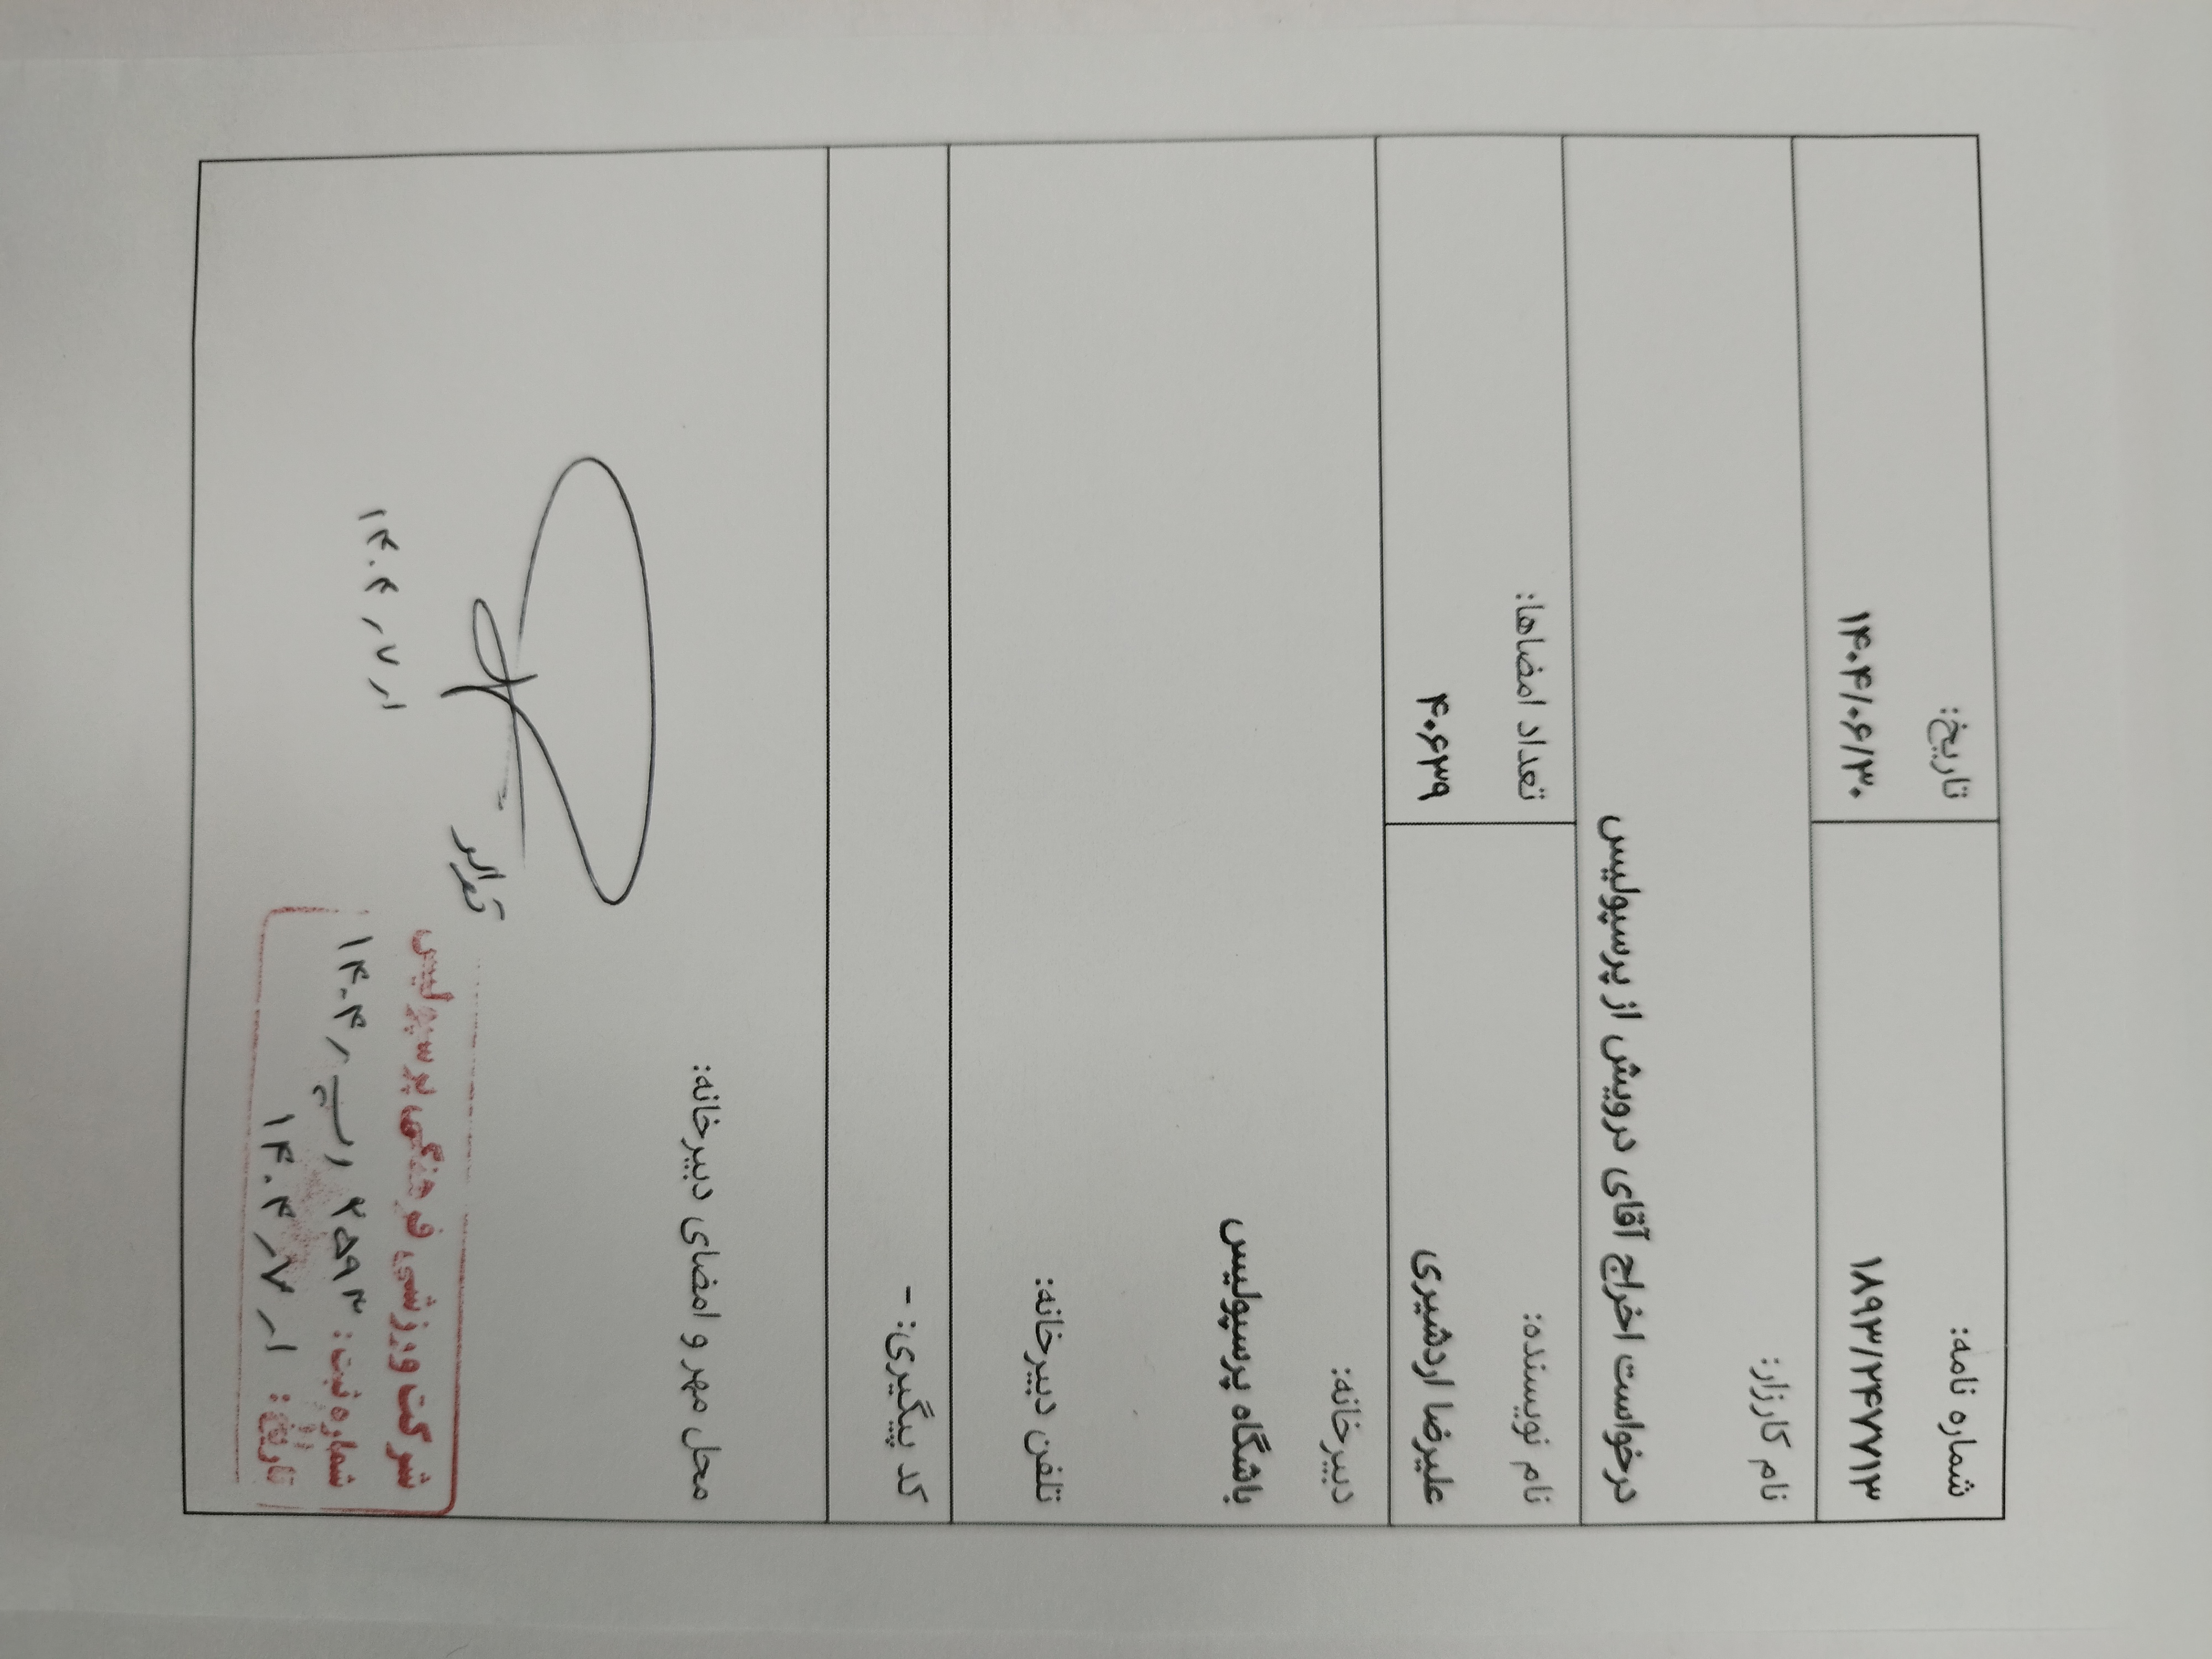 شماره نامه:
۱۸۹۳/۲۴۷۷۱۳
تاریخ:
۱۴۰۴/۰۶/۳۰
نام کارزار:
درخواست اخراج آقای درویش از پرسپولیس
نام نویسنده:
علیرضا اردشیری
تعداد امضاها:
۴۰۶۳۹
دبیرخانه:
باشگاه پرسپولیس
تلفن دبیرخانه:
کد پیگیری: -
محل مهر و امضای دبیرخانه:
۱۴۰۴٫۷٫۱
شرکت ورزشی فرهنگی پرسپولیس
شماره ثبت: ۲۵۹۳ /پ/ ۱۴۰۴
تاریخ: ۱۴۰۴٫۷٫۱